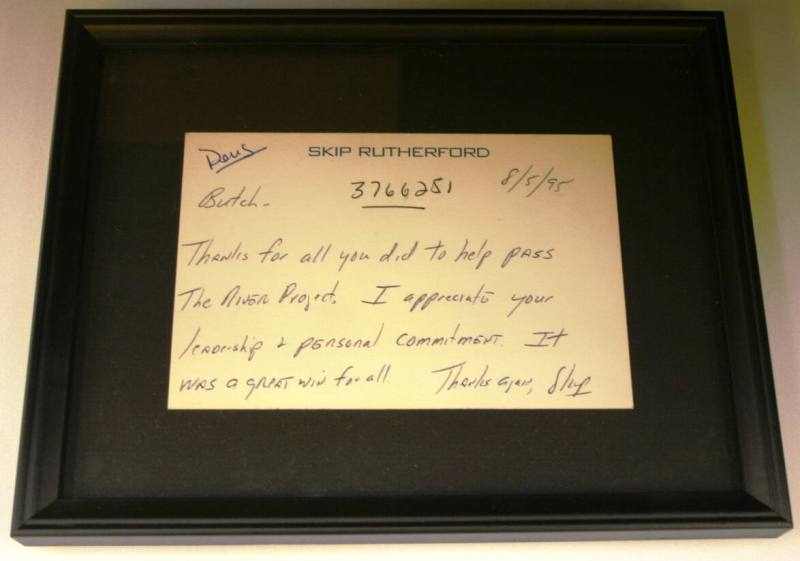 Doug SKIP RUTHERFORD
3766251 8/5/95
Butch-
Thanks for all you did to help pass
The River Project. I appreciate your
leadership & personal commitment. It
was a great win for all. Thanks again, Skip